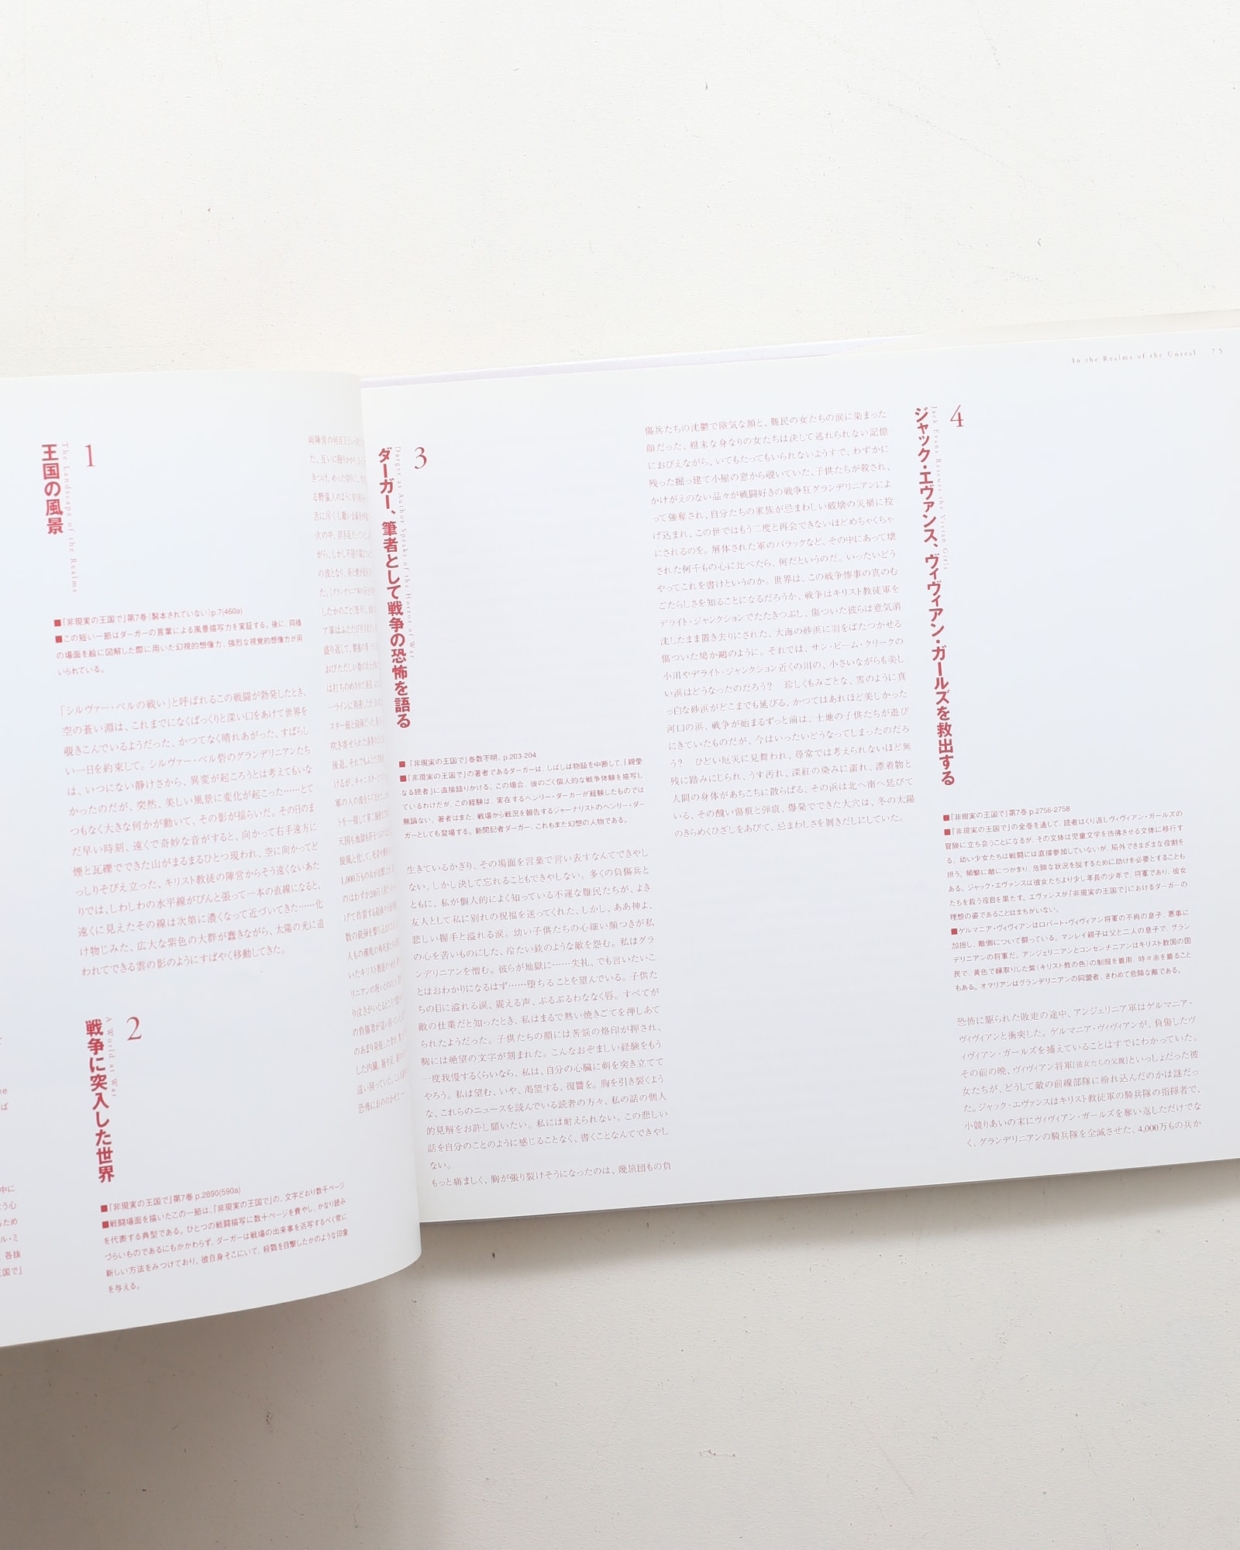 In the Realms of the Unreal 75
1
王国の風景
The Landscape of the Realms
■『非現実の王国で』第7巻(製本されていない)p.7(460a)
■この短い一節はダーガーの言葉による風景描写力を実証する。後に、同種
の場面を絵に図解した際に用いた幻視的想像力、強烈な視覚的想像力が用
いられている。
「シルヴァー・ベルの戦い」と呼ばれるこの戦闘が勃発したとき、
空の蒼い淵は、これまでになくぱっくりと深い口をあけて世界を
覗きこんでいるようだった。かつてなく晴れあがった、すばらし
い一日を約束して。シルヴァー・ベル砦のグランデリニアンたち
は、いつにない静けさから、異変が起ころうとは考えてもいな
かったのだが、突然、美しい風景に変化が起こった……とて
つもなく大きな何かが動いて、その影が揺らいだ。その日のま
だ早い時刻、遠くで奇妙な音がすると、向かって右手遠方に
煙と瓦礫でできた山がまるまるひとつ現われ、空に向かってど
っしりそびえ立った。キリスト教徒の陣営からそう遠くないあた
りでは、しわしわの水平線がぴんと張って一本の直線になると、
遠くに見えたその線は次第に濃くなって近づいてきた……化
け物じみた、広大な紫色の大群が蠢きながら、太陽の光に追
われてできる雲の影のようにすばやく移動してきた。
2
戦争に突入した世界
A World at War
■『非現実の王国で』第7巻 p.2890(590a)
■戦闘場面を描いたこの一節は、『非現実の王国で』の、文字どおり数千ページ
を代表する典型である。ひとつの戦闘描写に数十ページを費やし、かなり読み
づらいものであるにもかかわらず、ダーガーは戦場の出来事を活写するべく常に
新しい方法をみつけており、彼自身そこにいて、殺戮を目撃したかのような印象
を与える。
3
ダーガー、筆者として戦争の恐怖を語る
Darger as Author Speaks of the Horror of War
■『非現実の王国で』巻数不明、p.203-204
■『非現実の王国で』の著者であるダーガーは、しばしば物語を中断して、「親愛
なる読者」に直接語りかける。この場合、彼のごく個人的な戦争体験を描写し
ているわけだが、この経験は、実在するヘンリー・ダーガーが経験したものでは
無論ない。著者はまた、戦場から戦況を報告するジャーナリストのヘンリー・ダー
ガーとしても登場する。新聞記者ダーガー、これもまた幻想の人物である。
生きているかぎり、その場面を言葉で言い表すなんてできやし
ない。しかし決して忘れることもできやしない。多くの負傷兵と
ともに、私が個人的によく知っている不運な難民たちが、よき
友人として私に別れの祝福を送ってくれた。しかし、ああ神よ、
悲しい握手と溢れる涙。幼い子供たちの心細い顔つきが私
の心を苦いものにした、冷たい鉄のような敵を怨む。私はグラ
ンデリニアンを憎む。彼らが地獄に……失礼、でも言いたいこ
とはおわかりになるはず……堕ちることを望んでいる。子供た
ちの目に溢れる涙、震える声、ぶるぶるわななく唇。すべてが
敵の仕業だと知ったとき、私はまるで熱い焼きごてを押しあて
られたようだった。子供たちの顔には苦悩の烙印が押され、
胸には絶望の文字が刻まれた。こんなおぞましい経験をもう
一度我慢するくらいなら、私は、自分の心臓に剣を突き立てて
やろう。私は望む、いや、渇望する、復讐を。胸を引き裂くよう
な、これらのニュースを読んでいる読者の方々、私の話の個人
的見解をお許し願いたい。私には耐えられない。この悲しい
話を自分のことのように感じることなく、書くことなんてできやし
ない。
もっと痛ましく、胸が張り裂けそうになったのは、幾旅団もの負
傷兵たちの沈鬱で陰気な顔と、難民の女たちの涙に染まった
顔だった。粗末な身なりの女たちは決して逃れられない記憶
におびえながら、いてもたってもいられないようすで、わずかに
残った掘っ建て小屋の窓から覗いていた、子供たちが殺され、
かけがえのない品々が戦闘好きの戦争狂グランデリニアンによ
って強奪され、自分たちの家族が忌まわしい破壊の災禍に投
げ込まれ、この世ではもう二度と再会できないほどめちゃくちゃ
にされるのを。解体された軍のバラックなど、その中にあって壊
された何千もの心に比べたら、何だというのだ。いったいどう
やってこれを書けというのか。世界は、この戦争惨事の真のむ
ごたらしさを知ることになるだろうか。戦争はキリスト教徒軍を
デライト・ジャンクションでたたきつぶし、傷ついた彼らは意気消
沈したまま置き去りにされた。大海の砂浜に羽をばたつかせる
傷ついた鳩か鴎のように。それでは、サン・ビーム・クリークの
小川やデライト・ジャンクション近くの川の、小さいながらも美し
い浜はどうなったのだろう? 珍しくもみごとな、雪のように真
っ白な砂浜がどこまでも延びる、かつてはあれほど美しかった
河口の浜。戦争が始まるずっと前は、土地の子供たちが遊び
にきていたものだが、今はいったいどうなってしまったのだろ
う? ひどい厄災に見舞われ、尋常では考えられないほど無
残に踏みにじられ、うす汚れ、深紅の染みに濡れ、漂着物と
人間の身体があちこちに散らばる。その浜は北へ南へ延びて
いる、その醜い傷痕と弾痕、爆発でできた大穴は、冬の太陽
のきらめくひざしをあびて、忌まわしさを剥きだしにしていた。
4
ジャック・エヴァンス、ヴィヴィアン・ガールズを救出する
Jack Evans Rescues the Vivian Girls
■『非現実の王国で』第7巻 p.2756-2758
■『非現実の王国で』の全巻を通して、読者はくり返しヴィヴィアン・ガールズの
冒険に立ち会うことになるが、その文体は児童文学を彷彿させる文体に移行す
る。幼い少女たちは戦闘には直接参加していないが、局外できまざまな役割を
担う。頻繁に敵につかまり、危険な状況を脱するために助けを必要とすることも
ある。ジャック・エヴァンスは彼女たちより少し年長の少年で、将軍であり、彼女
たちを救う役目を果たす。エヴァンスが『非現実の王国で』におけるダーガーの
理想の姿であることはまちがいない。
■ゲルマニア・ヴィヴィアンはロバート・ヴィヴィアン将軍の不肖の息子、悪事に
加担し、敵側について闘っている。マンレイ親子は父と二人の息子で、グラン
デリニアンの将軍だ。アンジェリニアンとコンセンチニアンはキリスト教国の国
民で、黄色で縁取りした紫(キリスト教の色)の制服を着用、時々赤を着ること
もある。オマリアンはグランデリニアンの同盟者、きわめて危険な敵である。
恐怖に駆られた敗走の途中、アンジェリニア軍はゲルマニア・
ヴィヴィアンと衝突した。ゲルマニア・ヴィヴィアンが、負傷したヴ
ィヴィアン・ガールズを捕えていることはすでにわかっていた。
その前の晩、ヴィヴィアン将軍(彼女たちの父親)といっしょだった彼
女たちが、どうして敵の前線部隊に紛れ込んだのかは謎だっ
た。ジャック・エヴァンスはキリスト教徒軍の騎兵隊の指揮者で、
小競りあいの末にヴィヴィアン・ガールズを奪い返しただけでな
く、グランデリニアンの騎兵隊を全滅させた。4,000万もの兵か